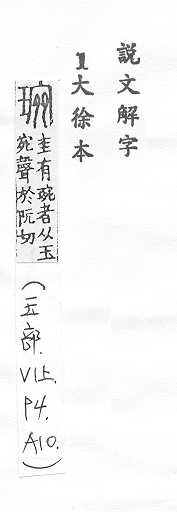 說文解字
1大徐本
琬
圭有琬者从玉
宛聲於阮切
(玉部. V1上. P4. A10.)